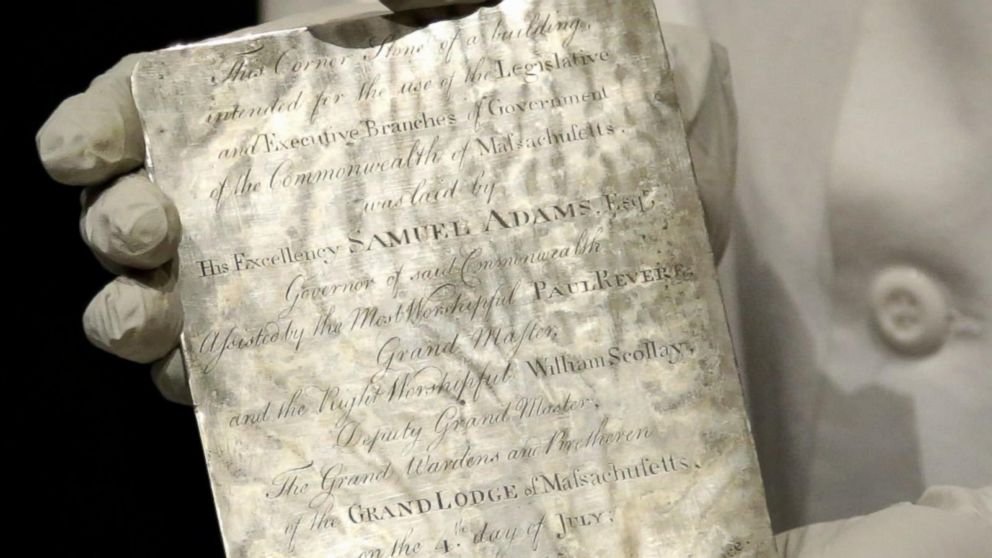 This Corner Stone of a building,
intended for the use of the Legislative
and Executive Branches of Government
of the Commonwealth of Maſsachuſetts.
was laid by
His Excellency SAMUEL ADAMS, Esqr,
Governor of said Commonwealth
Aſsisted by the Most Worshipful PAUL REVERE,
Grand Maſter,
and the Right Worshipful William Scollay,
Deputy Grand Maſter,
The Grand Wardens and Bretheren
of the GRAND LODGE of Maſsachuſetts.
on the 4th day of JULY;